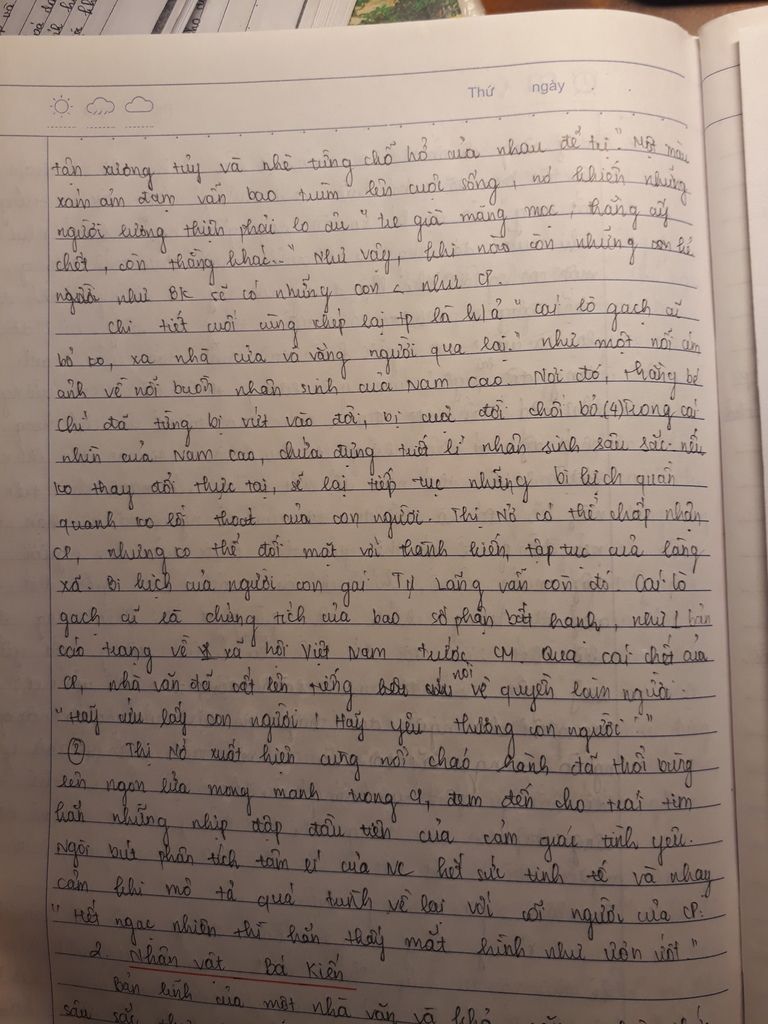 Thứ ngày
tận xương tủy và nhè từng chỗ hở của nhau để trị". Một màu
xám ảm đạm vẫn bao trùm lên cuộc sống, nó khiến những
người lương thiện phải lo sợ "tre già măng mọc, thằng ấy
chết, còn thằng khác..." Như vậy, khi nào còn những con
người như BK sẽ có những con < như CP.
Chi tiết cuối cùng khép lại tp là h/ả "cái lò gạch cũ
bỏ ko, xa nhà cửa và vắng người qua lại." như một nỗi ám
ảnh về nỗi buồn nhân sinh của Nam Cao. Nơi đó, thằng bé
Chí đã từng bị vứt vào đời, bị cuộc đời chối bỏ (4) Trong cái
nhìn của Nam Cao, chứa đựng triết lí nhân sinh sâu sắc: nếu
ko thay đổi thực tại, sẽ lại tiếp tục những bi kịch quẩn
quanh ko lối thoát của con người. Thị Nở có thể chấp nhận
CP, nhưng ko thể đối mặt với thành kiến, tập tục của làng
xã. Bi kịch của người con gái Tự Lãng vẫn còn đó. Cái lò
gạch cũ là chứng tích của bao số phận bất hạnh, như 1 bản
cáo trạng về xã hội Việt Nam trước CM. Qua cái chết của
CP, nhà văn đã cất lên tiếng nói về quyền làm người.
"Hãy cứu lấy con người! Hãy yêu thương con người!"
② Thị Nở xuất hiện cùng nồi cháo hành đã thổi bùng
lên ngọn lửa mong manh trong CP, đem đến cho trái tim
hắn những nhịp đập đầu tiên của cảm giác tình yêu.
Ngòi bút phân tích tâm lí của NC hết sức tinh tế và nhạy
cảm khi mô tả quá trình về lại với cõi người của CP:
"Hết ngạc nhiên thì hắn thấy mắt hình như ươn ướt."
2. Nhân vật Bá Kiến
Bản lĩnh của một nhà văn và khả
sâu sắc